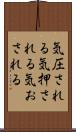 気圧され
る気押さ
れる気お
される